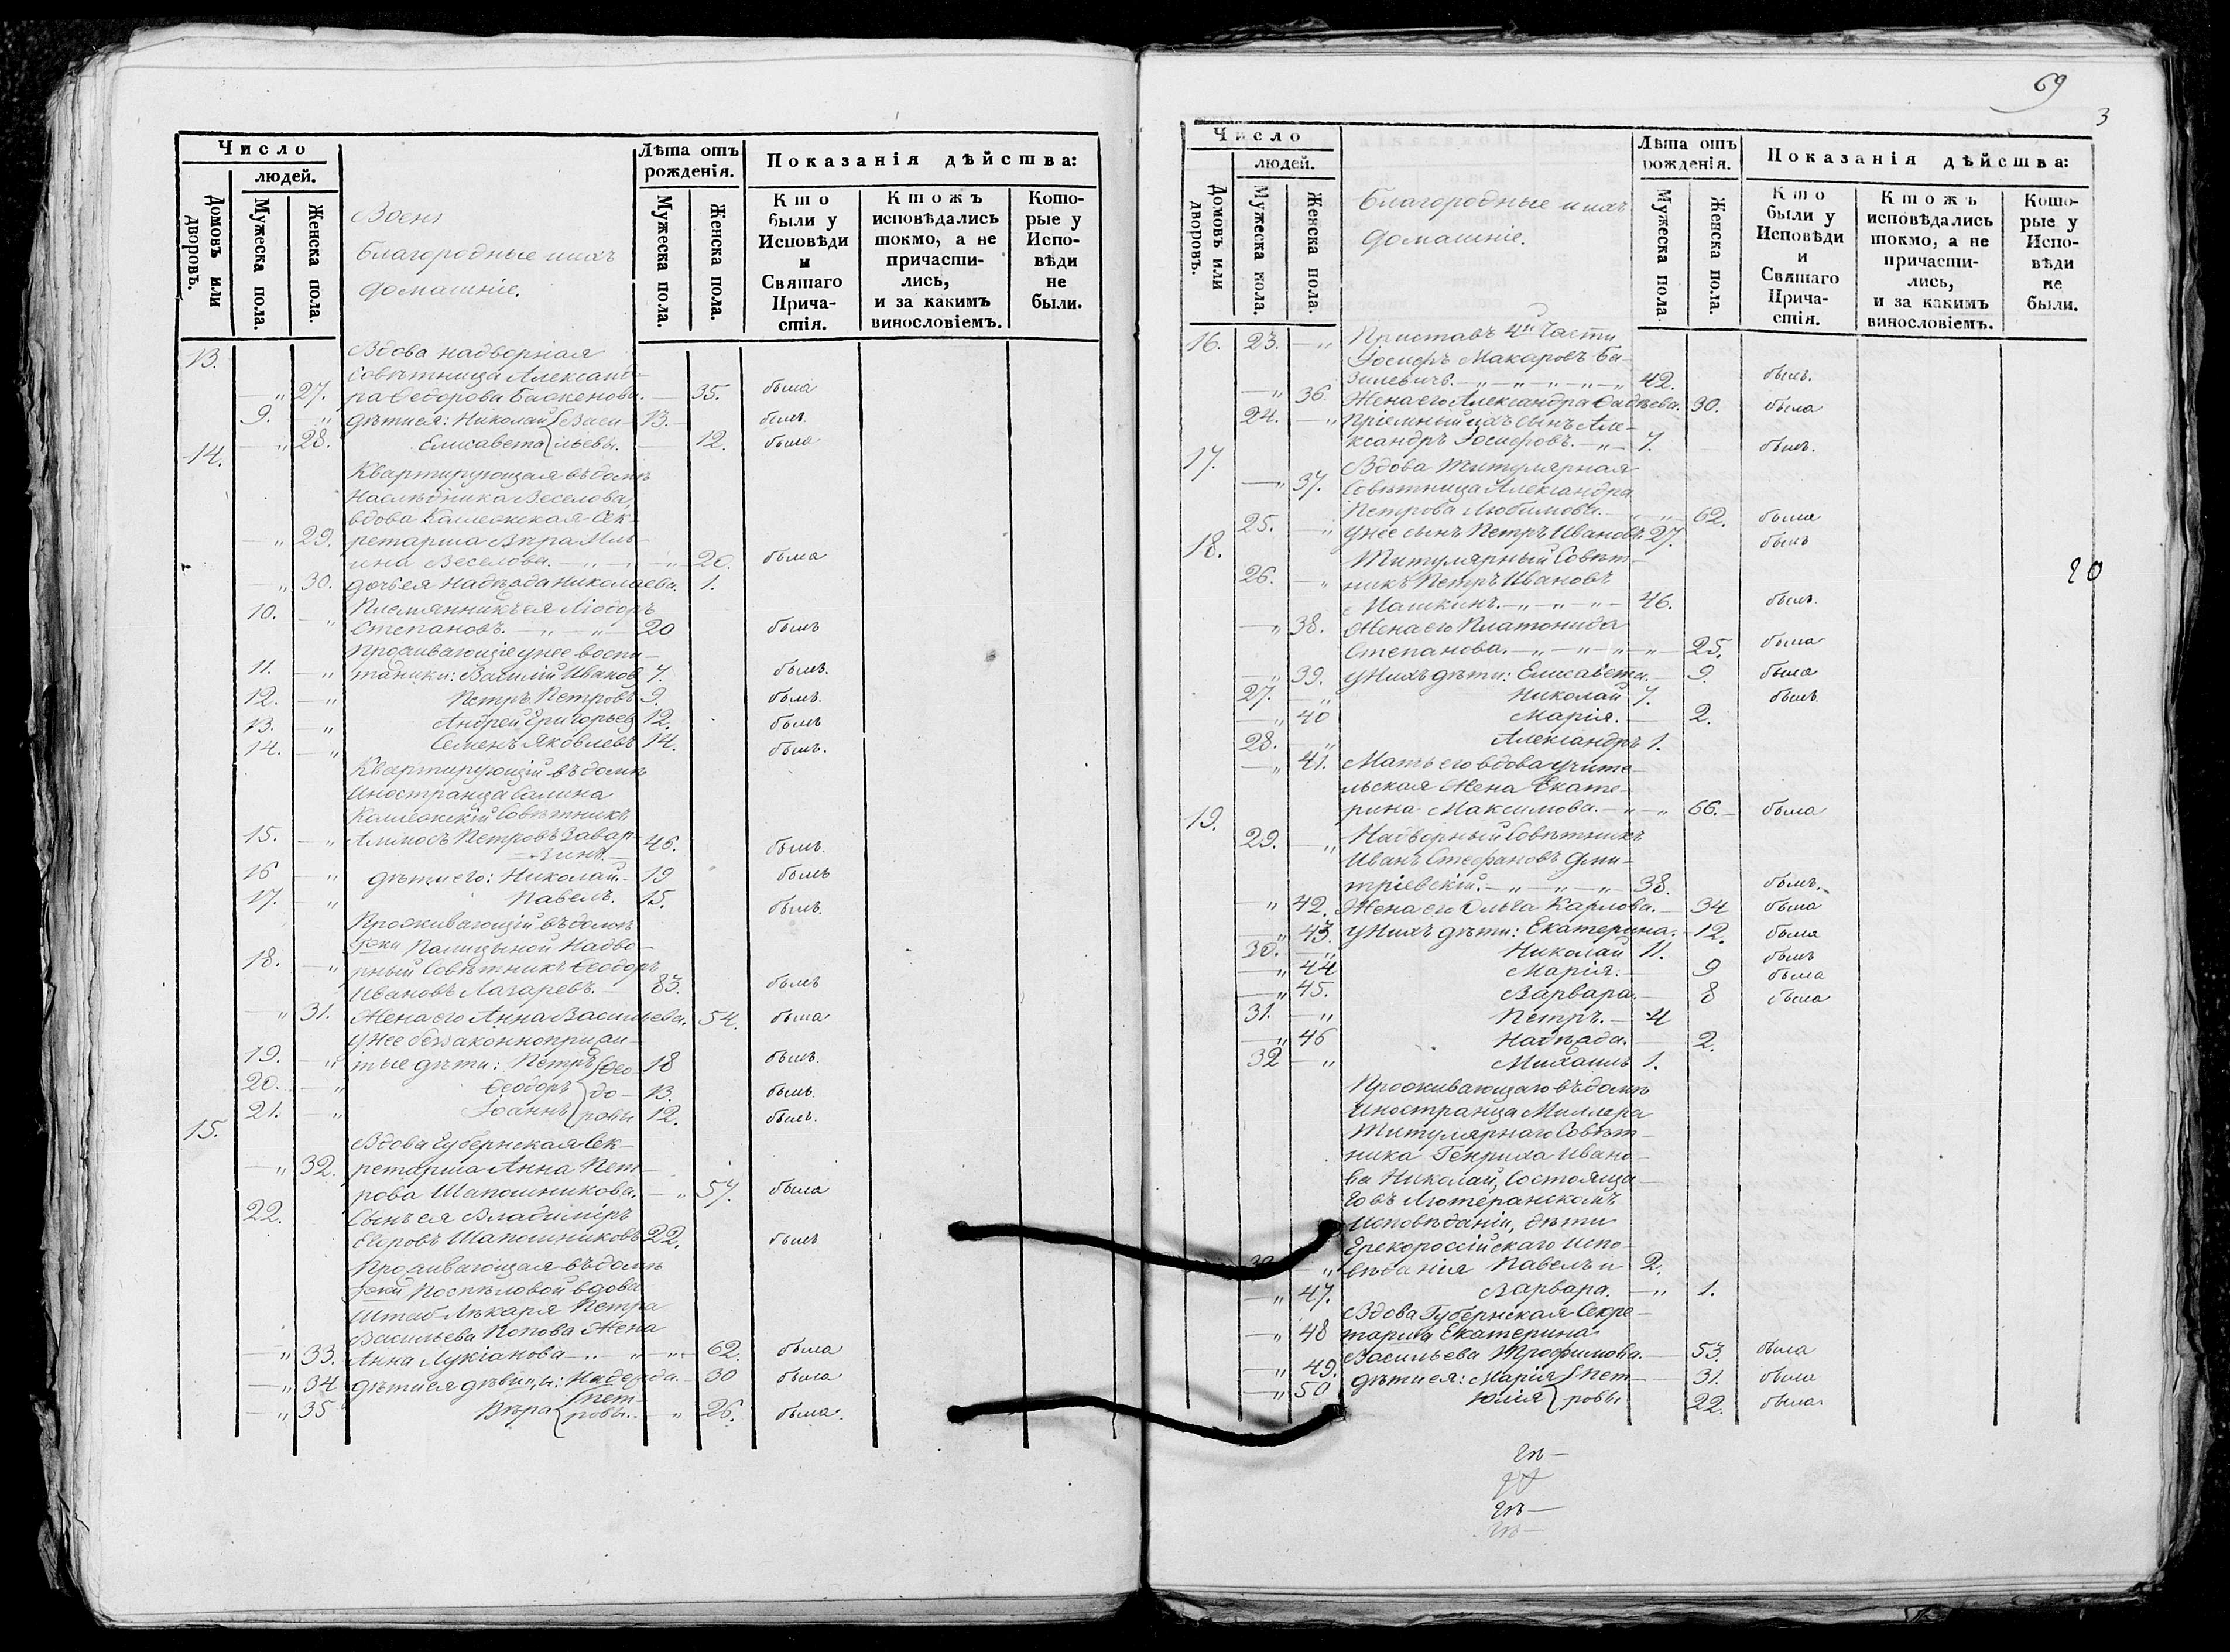 Число
людей.
Домовъ или дворовъ.
Мужеска пола.
Женска пола.
Военн
Благородные и ихъ
домашніе.
Лѣта отъ рожденія.
Мужеска пола.
Женска пола.
Показанія дѣйства:
Кто были у Исповѣди и Святаго Прича-стія.
Ктожъ исповѣдались токмо, а не причасти-лись, и за какимъ винословіемъ.
Кото-рые у Испо-вѣди не были.
13. Вдова надворная
Совѣтница Александ-
— " 27. ра Ѳедорова Баженова. — 35. была
9. " дѣти ея: Николай { Васи- 13. — былъ
— " 28. Елисавета { льевы. — 12. была
14. Квартирующая въ домѣ
Наслѣдника Веселова,
вдова Коллежская Сек-
— " 29. ретарша Вѣра Иль-
ина Веселова. — " — " 20. была
— " 30. дочь ея Надежда Николаева. 1.
10. — " Племянникъ ея Ліодоръ
Степановъ. — " — " — 20 былъ
Проживающіе у нее воспи-
11. — " танники: Василій Иванов 7. былъ.
12. — " Петръ Петровъ 9. былъ.
13. — " Андрей Григорьев 12. былъ
14. — " Семенъ Яковлевъ 14. былъ.
Квартирующій въ домѣ
Иностранца Валина
Коллежскій Совѣтникъ
15. — " Петровъ Завар-
= зинъ. — 46. былъ.
16 — " дѣти его: Николай. — 19 былъ
17. — " Павелъ. 15. былъ.
Проживающій въ домѣ
Г-жи Палицыной Надво-
18. — " рный Совѣтникъ Ѳеодоръ
Ивановъ Лазаревъ. — 83. былъ
— " 31. Жена его Анна Васильева. 54. была
У нее беззаконноприжи-
19. — " тые дѣти: Петръ { Ѳео- 18 былъ.
20. — " Ѳеодоръ { до- 13. былъ.
21. — " Іоаннъ { ровы 12. былъ.
15. Вдова Губернская Сек-
— " 32. ретарша Анна Пет-
рова Шапошникова. — " 57. была
22. Сынъ ея Владиміръ
Егоровъ Шапошниковъ 22. былъ
Проживающая въ домѣ
Г-жи Поспѣловой вдова
Штаб-Лѣкаря Петра
Васильева Попова Жена
— " 33. Анна Лукіанова — " — " — " 62. была
— " 34 дѣти ея дѣвицы: Надежда. — 30 была
— " 35 Вѣра { Пет-ровы. — " 26. была.
69
3
Число
людей.
Домовъ или дворовъ.
Мужеска пола.
Женска пола.
Благородные и ихъ
домашніе.
Лѣта отъ рожденія.
Мужеска пола.
Женска пола.
Показанія дѣйства:
Кто были у Исповѣди и Святаго Прича-стія.
Ктожъ исповѣдались токмо, а не причасти-лись, и за какимъ винословіемъ.
Кото-рые у Испо-вѣди не были.
16. 23. — " Приставъ 4й Части
Іосифъ Макаровъ Ба-
зилевичъ. — " — " — " — " — " 42. былъ.
— " 36. Жена его Александра Фадѣева. 30. была
24. — " Пріемный ихъ сынъ Але-
ксандръ Іосифовъ. — " — 7. былъ.
17. Вдова Титулярная
— " 37. Совѣтница Александра
Петрова Любимова. — " — " 62. была
25. — " У нее сынъ Петръ Ивановъ 27. былъ
18. Титулярный Совѣт-
26. — " никъ Петръ Ивановъ
Машкинъ. — " — " — " — 46. былъ.
20
— " 38. Жена его Платонида
Степанова. — " — " — " — " — 25. была
— " 39. У нихъ дѣти: Елисавета. — 9. была
27. — " Николай 7. былъ.
— " 40 Марія. — 2.
28. — " Александръ 1.
— " 41. Мать его вдова учите-
льская Жена Екате-
рина Максимова. — " — " 66. — была
19.
29. — " Надворный Совѣтникъ
Иванъ Стефановъ Дми-
тріевскій. — " — " — " — 38. былъ.
— " 42. Жена его Ольга Карлова. — 34 была
— " 43. У нихъ дѣти: Екатерина. — 12. была
30. — " Николай 11. былъ
— " 44 Марія. — 9 была
— " 45. Варвара. — 8 была
31. — " Петръ. — 4
— " 46 Надежда. — 2.
32 — " Михаилъ 1.
Проживающаго въ домѣ
Иностранца Миллера
Титулярнаго Совѣт-
ника Генриха Ивано-
ва Николай, Состояща-
го въ Лютеранскомъ
Исповѣданіи, дѣти
Грекороссійскаго Испо-
— " вѣданія Павелъ и 2.
— " 47. Варвара. — " 1.
Вдова Губернская Секре-
— " 48 тарша Екатерина
Васильева Трофимова. — 53. была
— " 49. дѣти ея: Марія { Пет- — 31. была
— " 50 Юлія { ровы 22. была